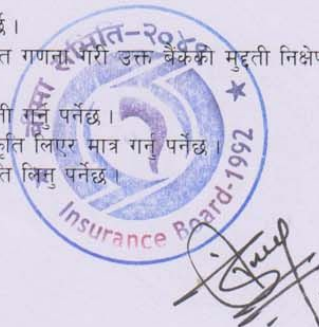 र्छ ।
त गणना गरी उक्त बैंकको मुद्दती निक्षेप
ती गर्नु पर्नेछ ।
कृति लिएर मात्र गर्नु पर्नेछ ।
ति लिनु पर्नेछ ।
बीमा समिति-२०४९
Insurance Board-1992